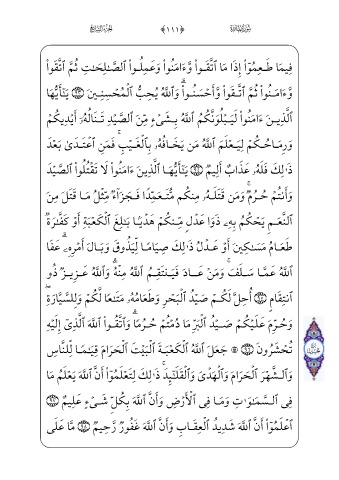 سُورَةُ المَائِدَةِ ﴿١١١﴾ الجُزْءُ السَّابِعُ
فِيمَا طَعِمُوٓا۟ إِذَا مَا ٱتَّقَوا۟ وَّءَامَنُوا۟ وَعَمِلُوا۟ ٱلصَّٰلِحَٰتِ ثُمَّ ٱتَّقَوا۟
وَّءَامَنُوا۟ ثُمَّ ٱتَّقَوا۟ وَّأَحْسَنُوا۟ۗ وَٱللَّهُ يُحِبُّ ٱلْمُحْسِنِينَ ﴿٩٣﴾ يَٰٓأَيُّهَا
ٱلَّذِينَ ءَامَنُوا۟ لَيَبْلُوَنَّكُمُ ٱللَّهُ بِشَىْءٍ مِّنَ ٱلصَّيْدِ تَنَالُهُۥٓ أَيْدِيكُمْ
وَرِمَاحُكُمْ لِيَعْلَمَ ٱللَّهُ مَن يَخَافُهُۥ بِٱلْغَيْبِۚ فَمَنِ ٱعْتَدَىٰ بَعْدَ
ذَٰلِكَ فَلَهُۥ عَذَابٌ أَلِيمٌ ﴿٩٤﴾ يَٰٓأَيُّهَا ٱلَّذِينَ ءَامَنُوا۟ لَا تَقْتُلُوا۟ ٱلصَّيْدَ
وَأَنتُمْ حُرُمٌۚ وَمَن قَتَلَهُۥ مِنكُم مُّتَعَمِّدًا فَجَزَآءٌ مِّثْلُ مَا قَتَلَ مِنَ
ٱلنَّعَمِ يَحْكُمُ بِهِۦ ذَوَا عَدْلٍ مِّنكُمْ هَدْيًۢا بَٰلِغَ ٱلْكَعْبَةِ أَوْ كَفَّٰرَةٌ
طَعَامُ مَسَٰكِينَ أَوْ عَدْلُ ذَٰلِكَ صِيَامًا لِّيَذُوقَ وَبَالَ أَمْرِهِۦۗ عَفَا
ٱللَّهُ عَمَّا سَلَفَۚ وَمَنْ عَادَ فَيَنتَقِمُ ٱللَّهُ مِنْهُۗ وَٱللَّهُ عَزِيزٌ ذُو
ٱنتِقَامٍ ﴿٩٥﴾ أُحِلَّ لَكُمْ صَيْدُ ٱلْبَحْرِ وَطَعَامُهُۥ مَتَٰعًا لَّكُمْ وَلِلسَّيَّارَةِۖ
وَحُرِّمَ عَلَيْكُمْ صَيْدُ ٱلْبَرِّ مَا دُمْتُمْ حُرُمًاۗ وَٱتَّقُوا۟ ٱللَّهَ ٱلَّذِىٓ إِلَيْهِ
تُحْشَرُونَ ﴿٩٦﴾ ۞ جَعَلَ ٱللَّهُ ٱلْكَعْبَةَ ٱلْبَيْتَ ٱلْحَرَامَ قِيَٰمًا لِّلنَّاسِ
وَٱلشَّهْرَ ٱلْحَرَامَ وَٱلْهَدْىَ وَٱلْقَلَٰٓئِدَۚ ذَٰلِكَ لِتَعْلَمُوٓا۟ أَنَّ ٱللَّهَ يَعْلَمُ مَا
فِى ٱلسَّمَٰوَٰتِ وَمَا فِى ٱلْأَرْضِ وَأَنَّ ٱللَّهَ بِكُلِّ شَىْءٍ عَلِيمٌ ﴿٩٧﴾
ٱعْلَمُوٓا۟ أَنَّ ٱللَّهَ شَدِيدُ ٱلْعِقَابِ وَأَنَّ ٱللَّهَ غَفُورٌ رَّحِيمٌ ﴿٩٨﴾ مَّا عَلَى